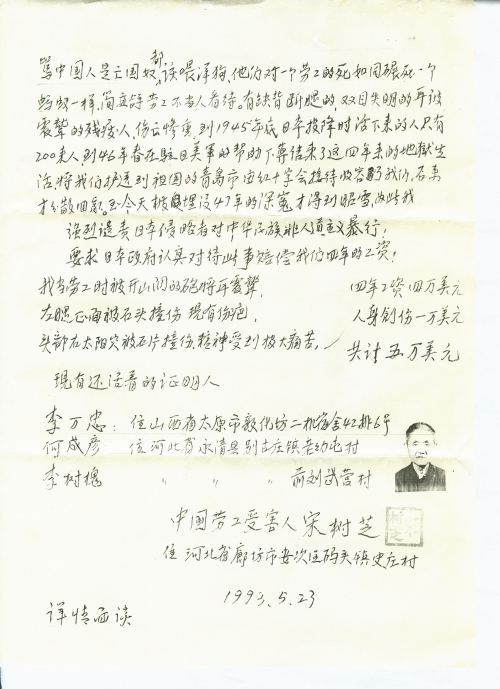 骂中国人是亡国奴，都该喂洋狗。他们对一个劳工的死如同碾死一个
蚂蚁一样，简直将劳工不当人看待。有缺背断腿的双目失明的耳被
震聋的残废人，伤亡惨重，到1945年底日本投降时活下来的人只有
200来人，到46年春在驻日美军的帮助下算结束了这四年来的地狱生
活，将我们护送到祖国的青岛市由红十字会接待收容了我们，后来
才分散回家。至今天被埋没47年的深冤才得到昭雪，为此我
强烈谴责日本侵略者对中华民族非人道主义暴行！
要求日本政府认真对待此事赔偿我们四年的工资！
我当劳工时被开山门的炮将耳震聋， 四年工资四万美元
左腿正面被石头撞伤现有伤疤， 人身创伤一万美元
头部右太阳穴被石片撞伤，精神受到极大痛苦。 共计五万美元
现有还活着的证明人
李万忠：住山西省太原市敦化坊二机宿舍42排6号
何成彦 住河北省永清县别古庄镇老幼屯村
李树槐 〃 〃 〃 前刘武营村
中国劳工受害人宋树芝
住河北省廊坊市安次区码头镇史庄村
1993.5.23
详情面谈